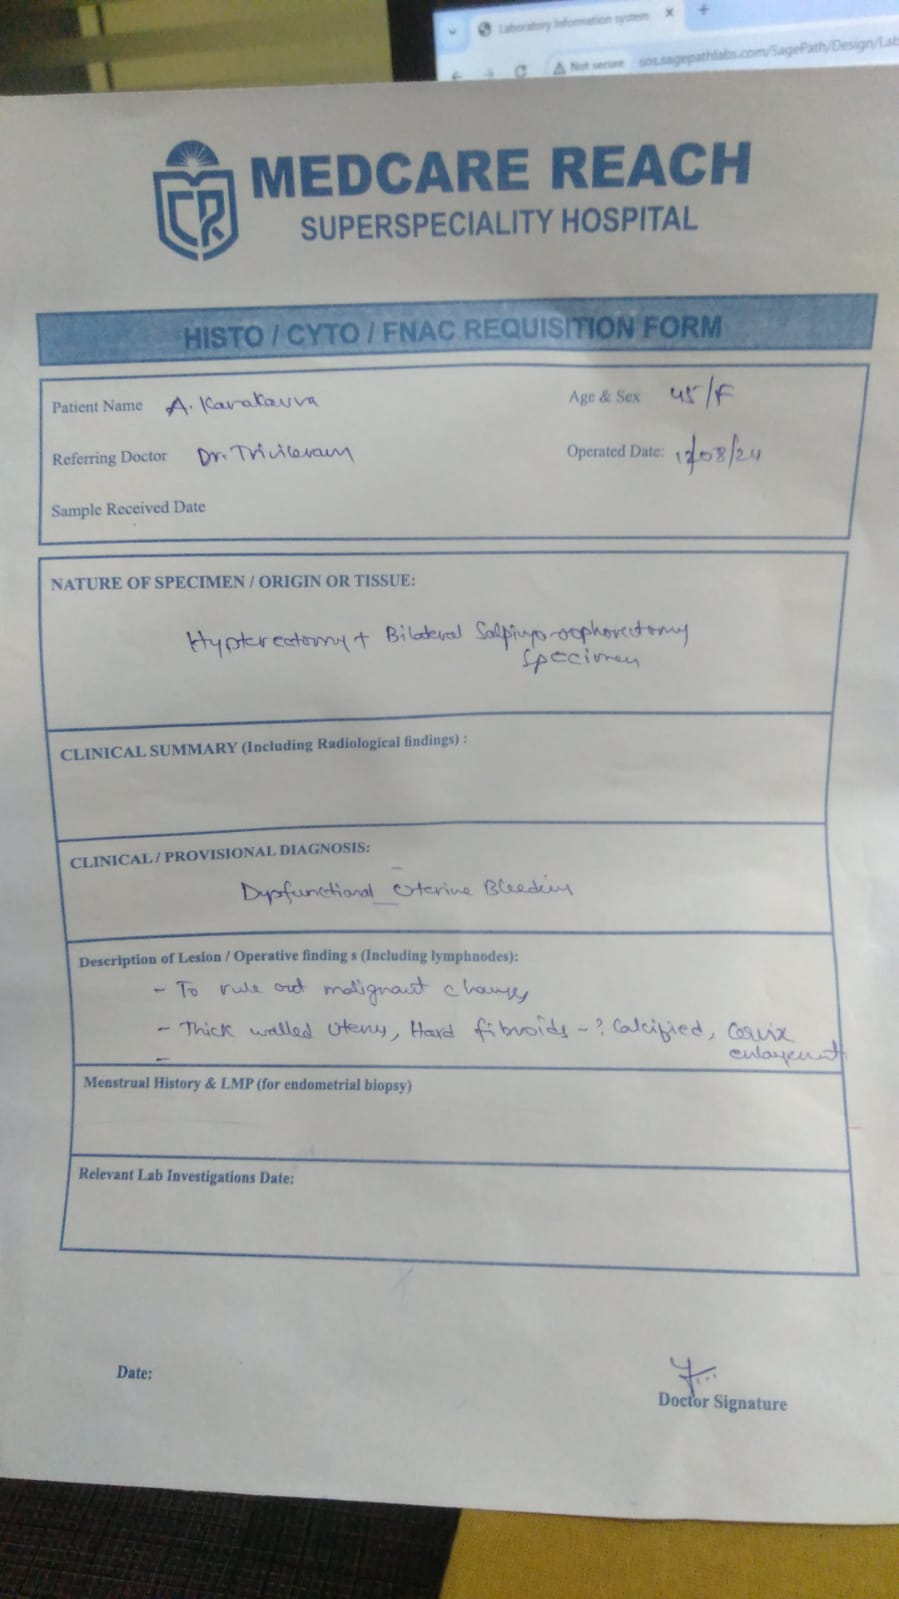 Laboratory Information system
Not secure sos.sagepathlabs.com/SagePath/Design/Lab
MEDCARE REACH
SUPERSPECIALITY HOSPITAL
HISTO / CYTO / FNAC REQUISITION FORM
Patient Name A. Age & Sex 45/F
Referring Doctor Dr. Operated Date: /08/24
Sample Received Date
NATURE OF SPECIMEN / ORIGIN OR TISSUE:
Hypterectomy + Bilateral Salpingo-oophorectomy
Specimen
CLINICAL SUMMARY (Including Radiological findings) :
CLINICAL / PROVISIONAL DIAGNOSIS:
Dysfunctional Uterine Bleeding
Description of Lesion / Operative finding s (Including lymphnodes):
- To rule out malignant changes
- Thick walled Uterus, Hard fibroids - ? Calcified, Cervix
enlargement
Menstrual History & LMP (for endometrial biopsy)
Relevant Lab Investigations Date:
Date:
Doctor Signature